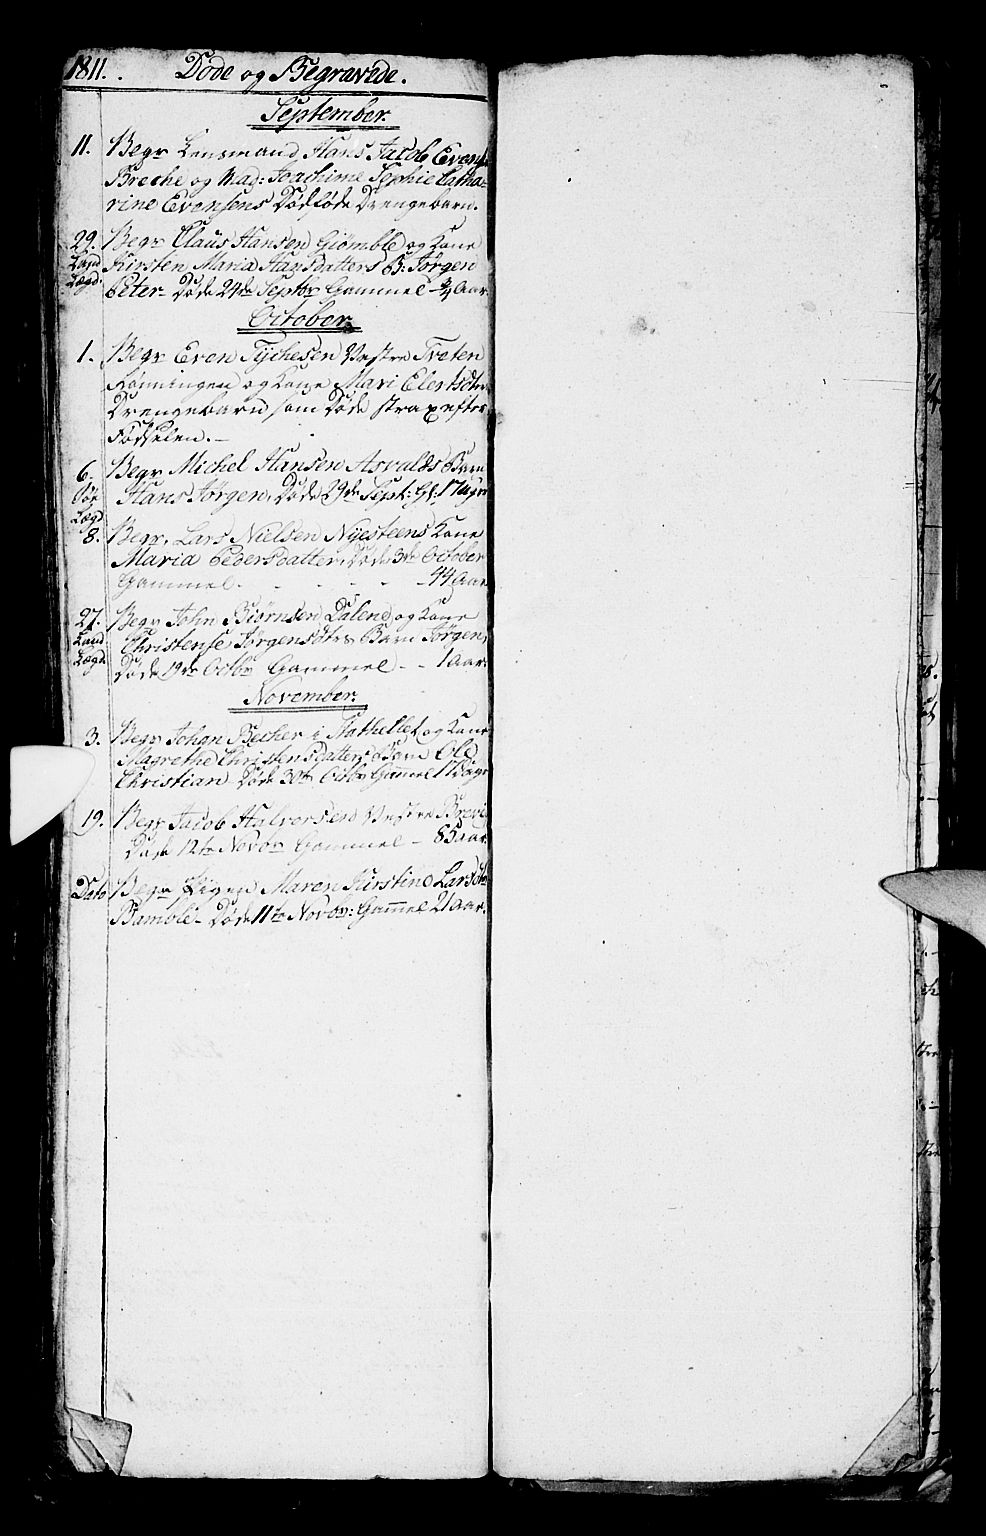 1811. Døde og Begravede.
September.
11. Begr Lensmand Hans Jacob Evens
Breche og Mad: Joachime Sophie Catha-
rine Evensens Dødføde Drengebarn.
29. Begr Claus Hansen Giømble og Kone
Land Kirsten Maria Hansdatters B: Jørgen
Lægd: Peter Døde 24de Septbr Gammel 3/4 Aar.
October.
1. Begr Even Tychesen Vestre Tveten
Rønningen og Kone Mari Elertsdtr
Drengebarn som Døde strax efter
Fødselen.
6. Begr Michel Hansen Asvalds Barn
Søe Hans Jørgen, Døde 29de Sept: Gl: 17 ugr
Lægd
8. Begr. Lars Nielsen Nyesteens Kone
Maria Pedersdatter, Døde 3de October
Gammel. - - - - - 44 Aar
27. Begr John Biørnsen Dalene og Kone
Land Christense Jørgensdtrs Barn Jørgen,
Lægd Døde 19de Octbr Gammel - - 1 Aar.
November.
3. Begr Johan Becher i Stathellet og Kone
Magrethe Christensdatters Barn Ole
Christian Døde 30te Octbr Gammel
19. Begr Jacob Halvorsen Vestre Brevig
Døde 12te Novbr Gammel - 85 aar.
Dato Begr Pigen Maren Kirstine Larsdtr
Bamble - Døde 11te Novbr: Gammel 21 Aar.